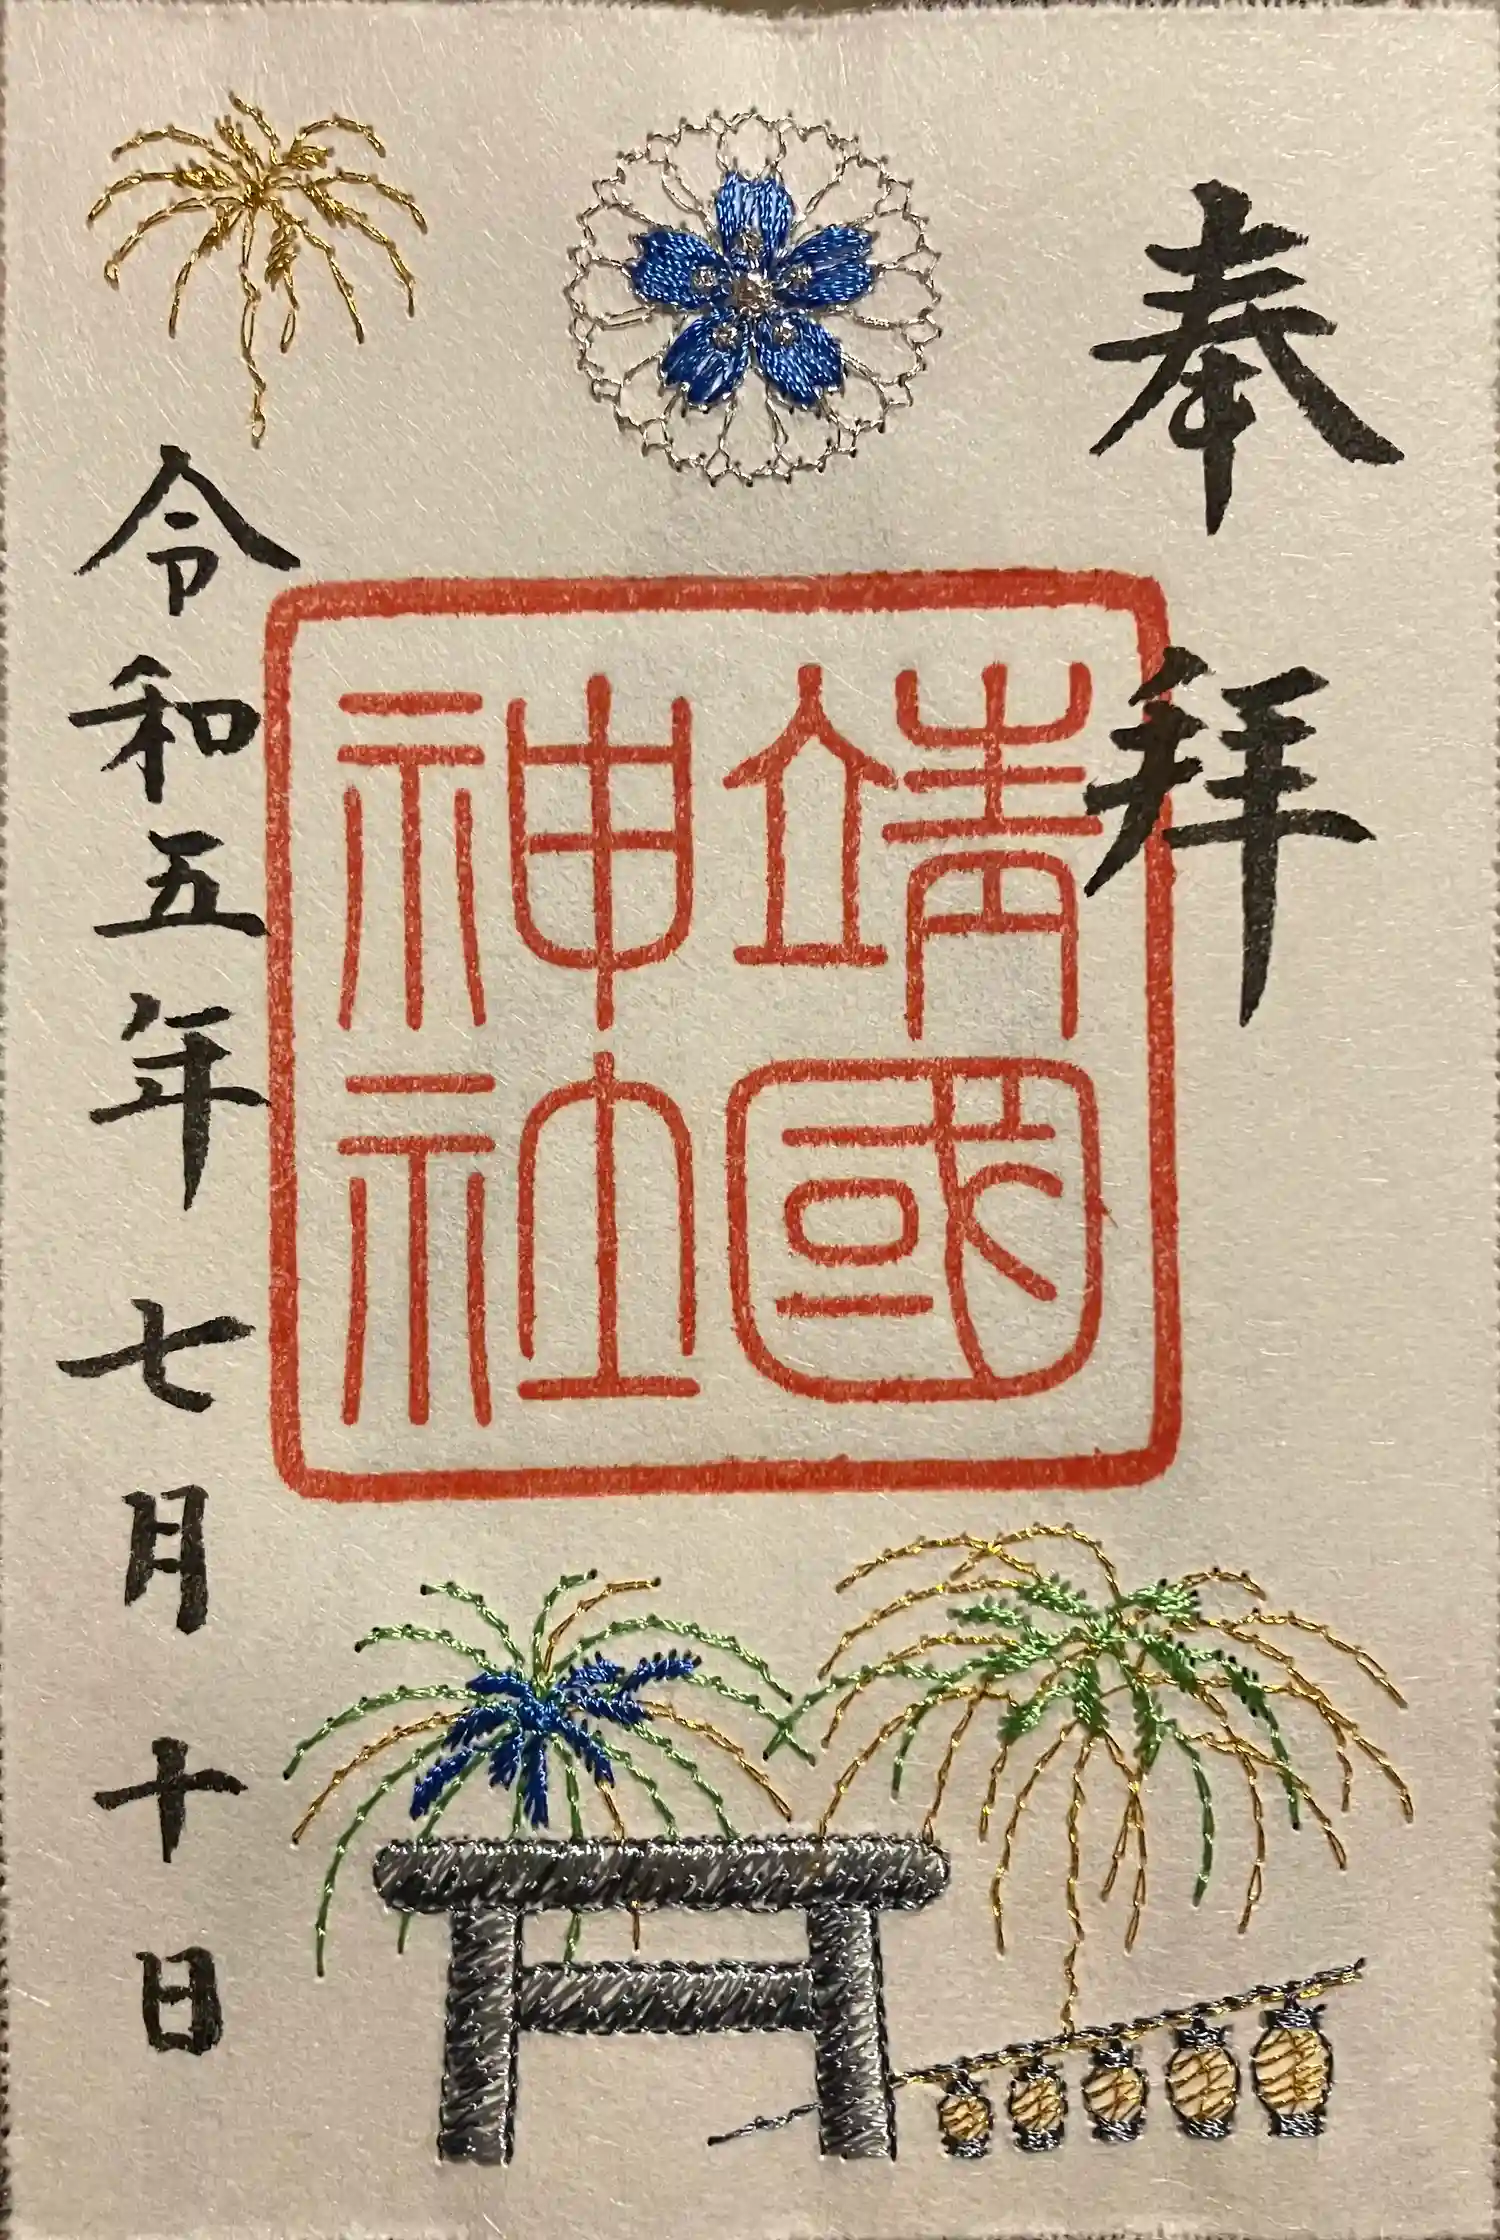 奉拝
靖國
神社
令和五年七月十日